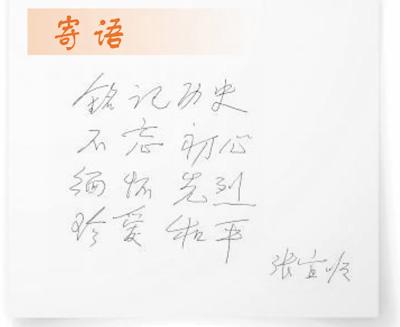 寄语
铭记历史
不忘初心
缅怀先烈
珍爱和平
张宣顺